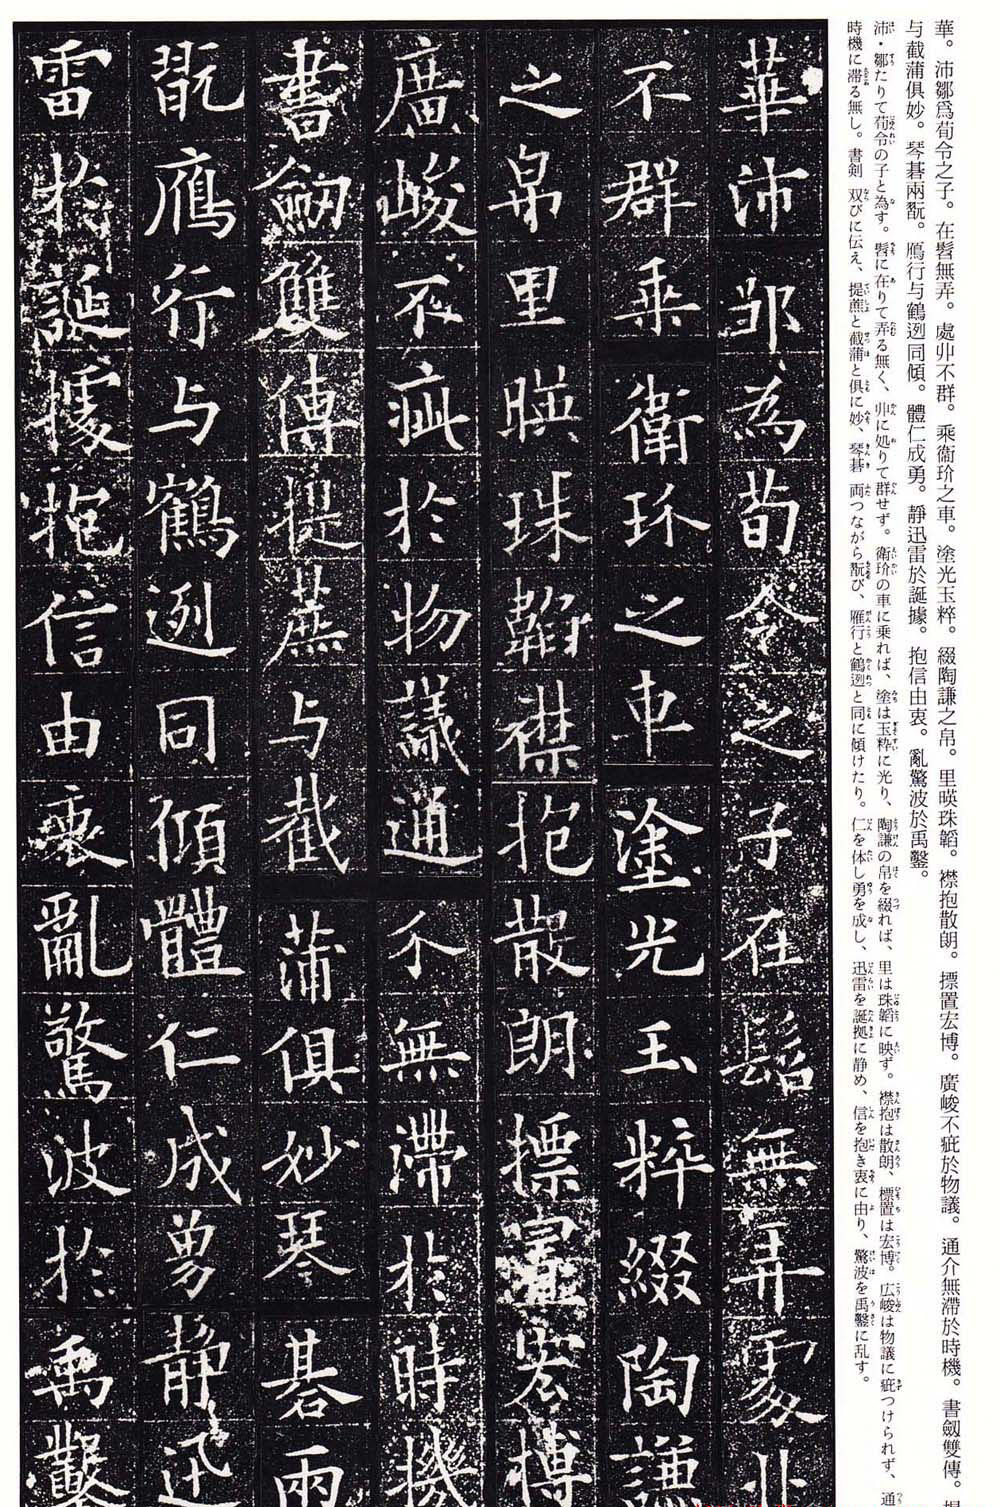 華。沛鄒爲荀令之子。在髫無弄。處丱不群。乘衞玠之車。塗光玉粹。綴陶謙之帛。里暎珠韜。襟抱散朗。摽置宏博。廣峻不疵於物議。通介無滯於時機。書劔雙傳。
与截蒲俱妙。琴碁兩翫。鴈行与鶴迾同傾。體仁成勇。靜迅雷於誕據。抱信由衷。亂驚波於禹鑿。
沛・鄒たりて荀令の子と為す。髫に在りて弄る無く、丱に処りて群せず。衛玠の車に乗れば、塗は玉粋に光り、陶謙の帛を綴れば、里は珠韜に映ず。襟抱は散朗、標置は宏博。広峻は物議に疵つけられず、通
時機に滞る無し。書剣 双びに伝え、提蕉と截蒲と俱に妙、琴碁 両つながら翫び、雁行と鶴迾と同に傾けたり。仁を体し勇を成し、迅雷を誕拠に静め、信を抱き衷に由り、驚波を禹鑿に乱す。
華沛鄒為荀令之子在髫無弄處丱
不群乘衛玠之車塗光玉粹綴陶謙
之帛里暎珠韜襟抱散朗摽置宏博
廣峻不疵於物議通介無滯於時機
書劔雙傳提蕉与截蒲俱妙琴碁兩
翫鴈行与鶴迾同傾體仁成勇靜迅
雷於誕據抱信由衷亂驚波於禹鑿